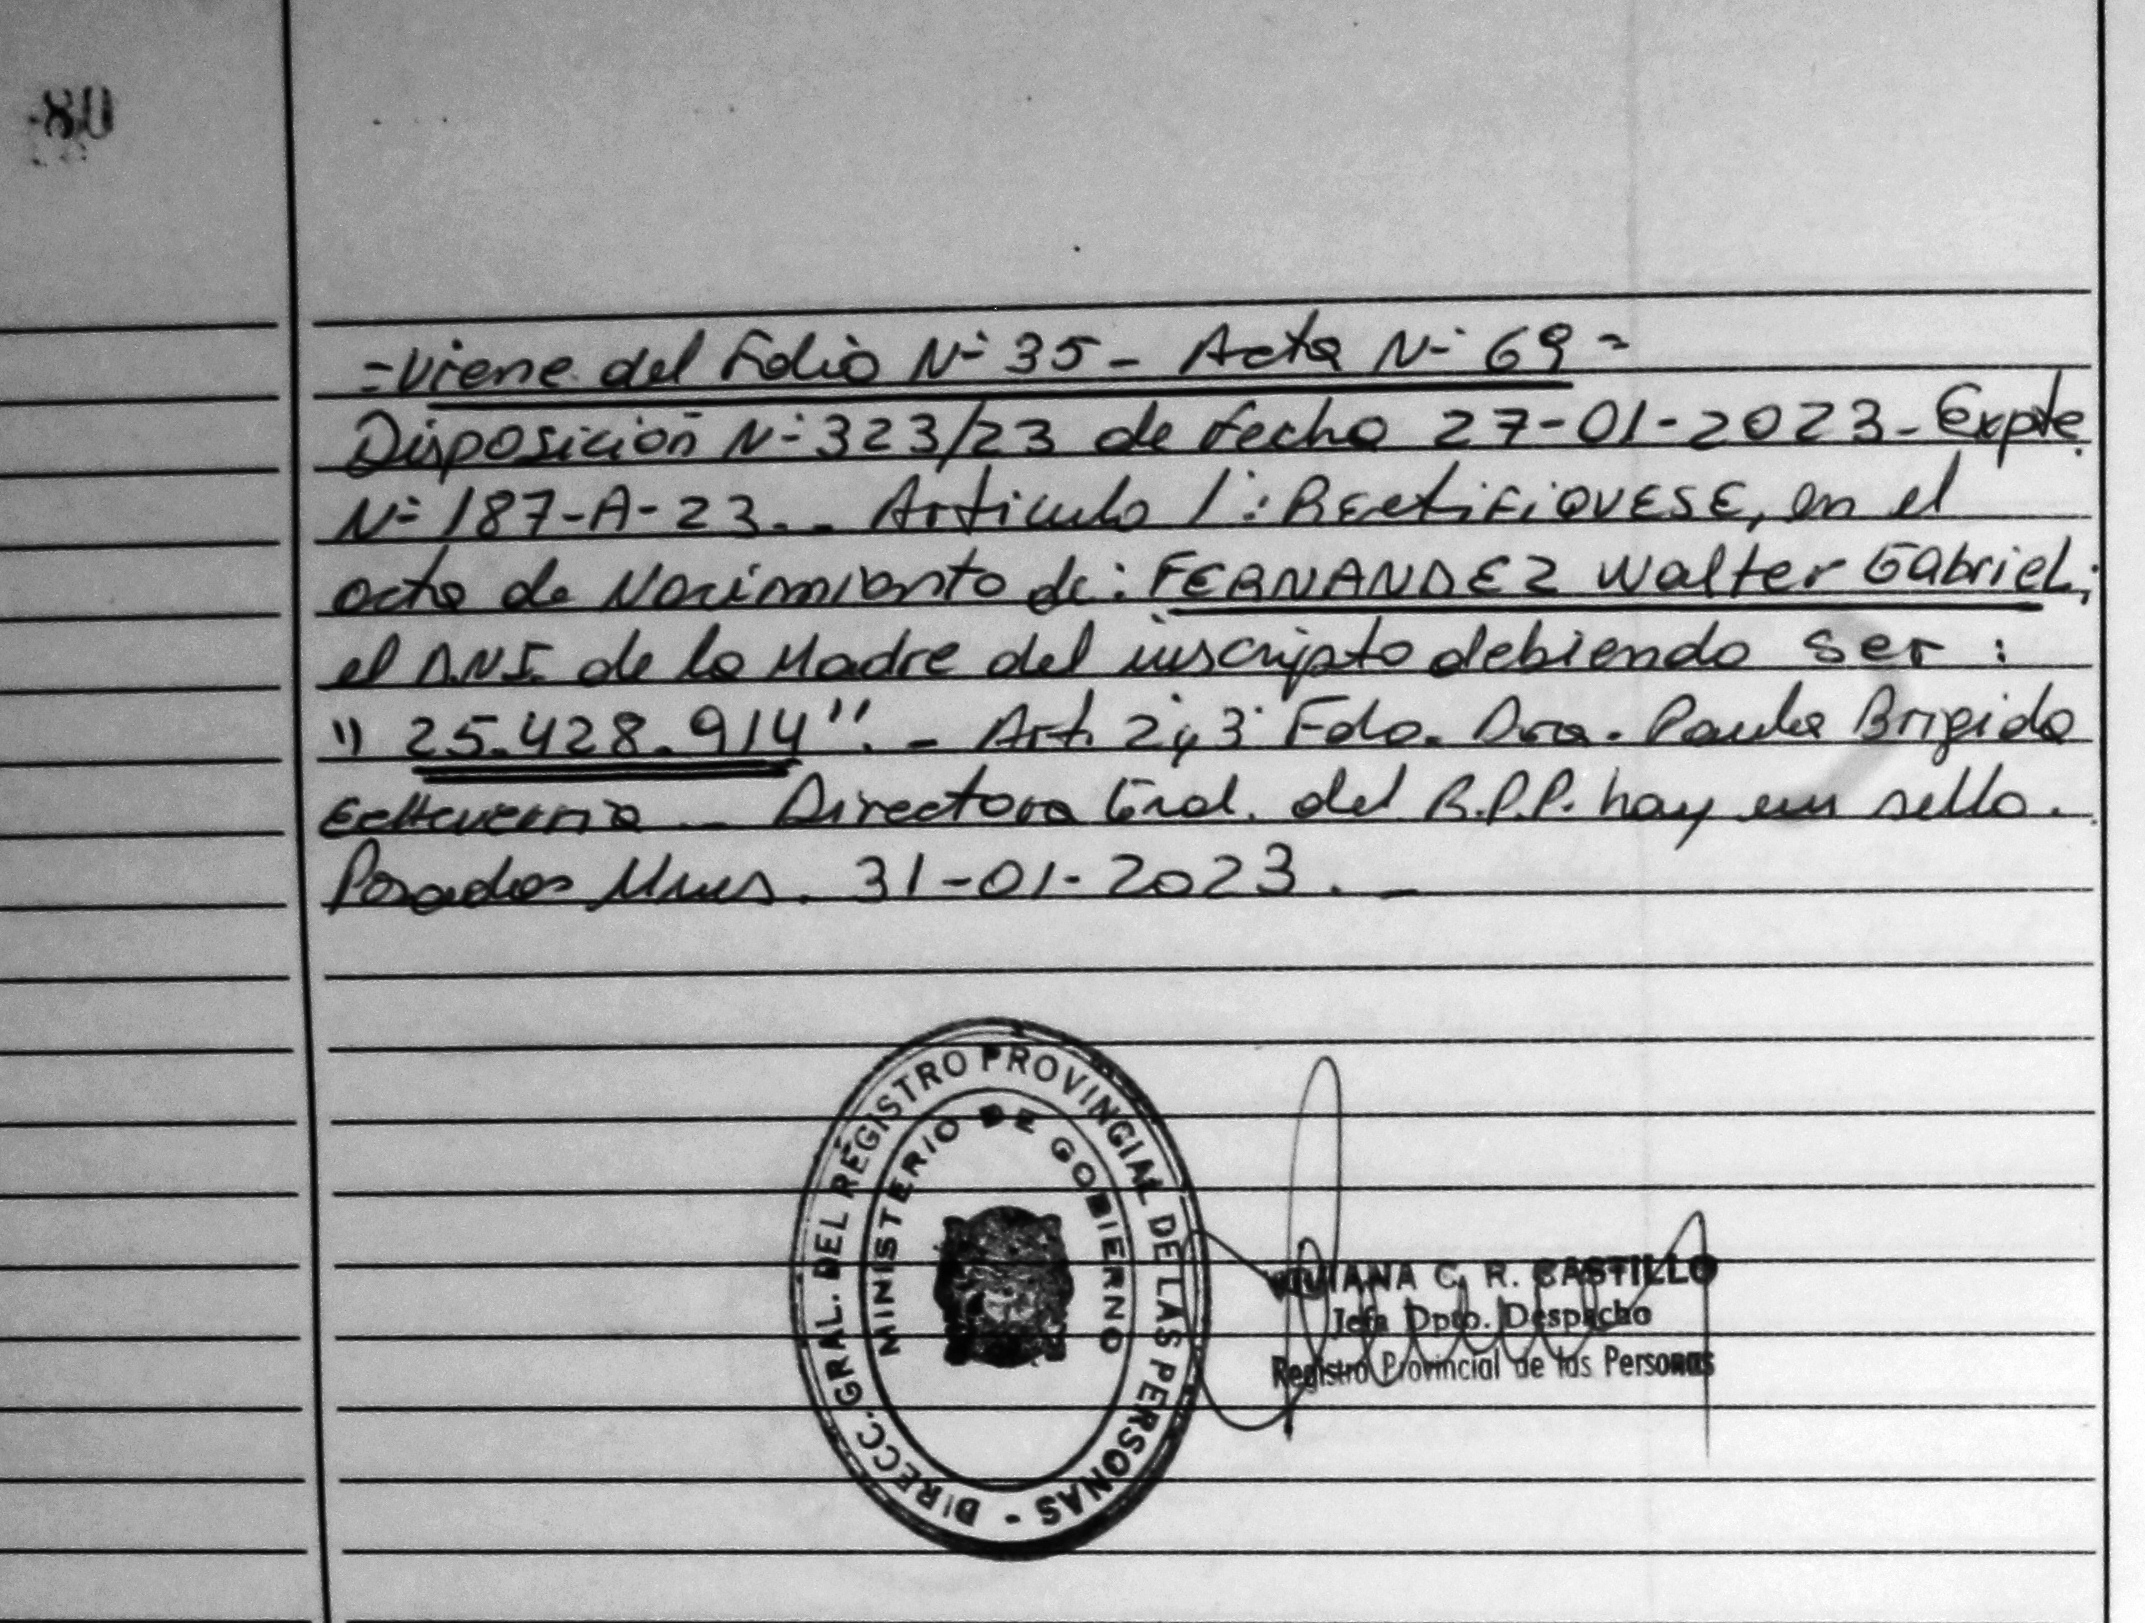 -80
=Viene del Folio Nº 35 - Acta Nº 69=
Disposición Nº 323/23 de fecha 27-01-2023- Expte.
Nº 187-A-23.- Articulo 1º: RectiFiQUESE, en el
acta de Nacimiento de: FERNANDEZ Walter Gabriel;
el D.N.I. de la Madre del inscripto debiendo ser :
"25.428.914".- Art. 2º y 3º Fdo. Dra. Paula Brigida
Echeverria - Directora Gral. del R.P.P. hay un sello.
Posadas Mnes. 31-01-2023.-
DIRECC. GRAL. DEL REGISTRO PROVINCIAL DE LAS PERSONAS -
MINISTERIO DE GOBIERNO
VIVIANA C. R. CASTILLO
Jefa Dpto. Despacho
Registro Provincial de las Personas